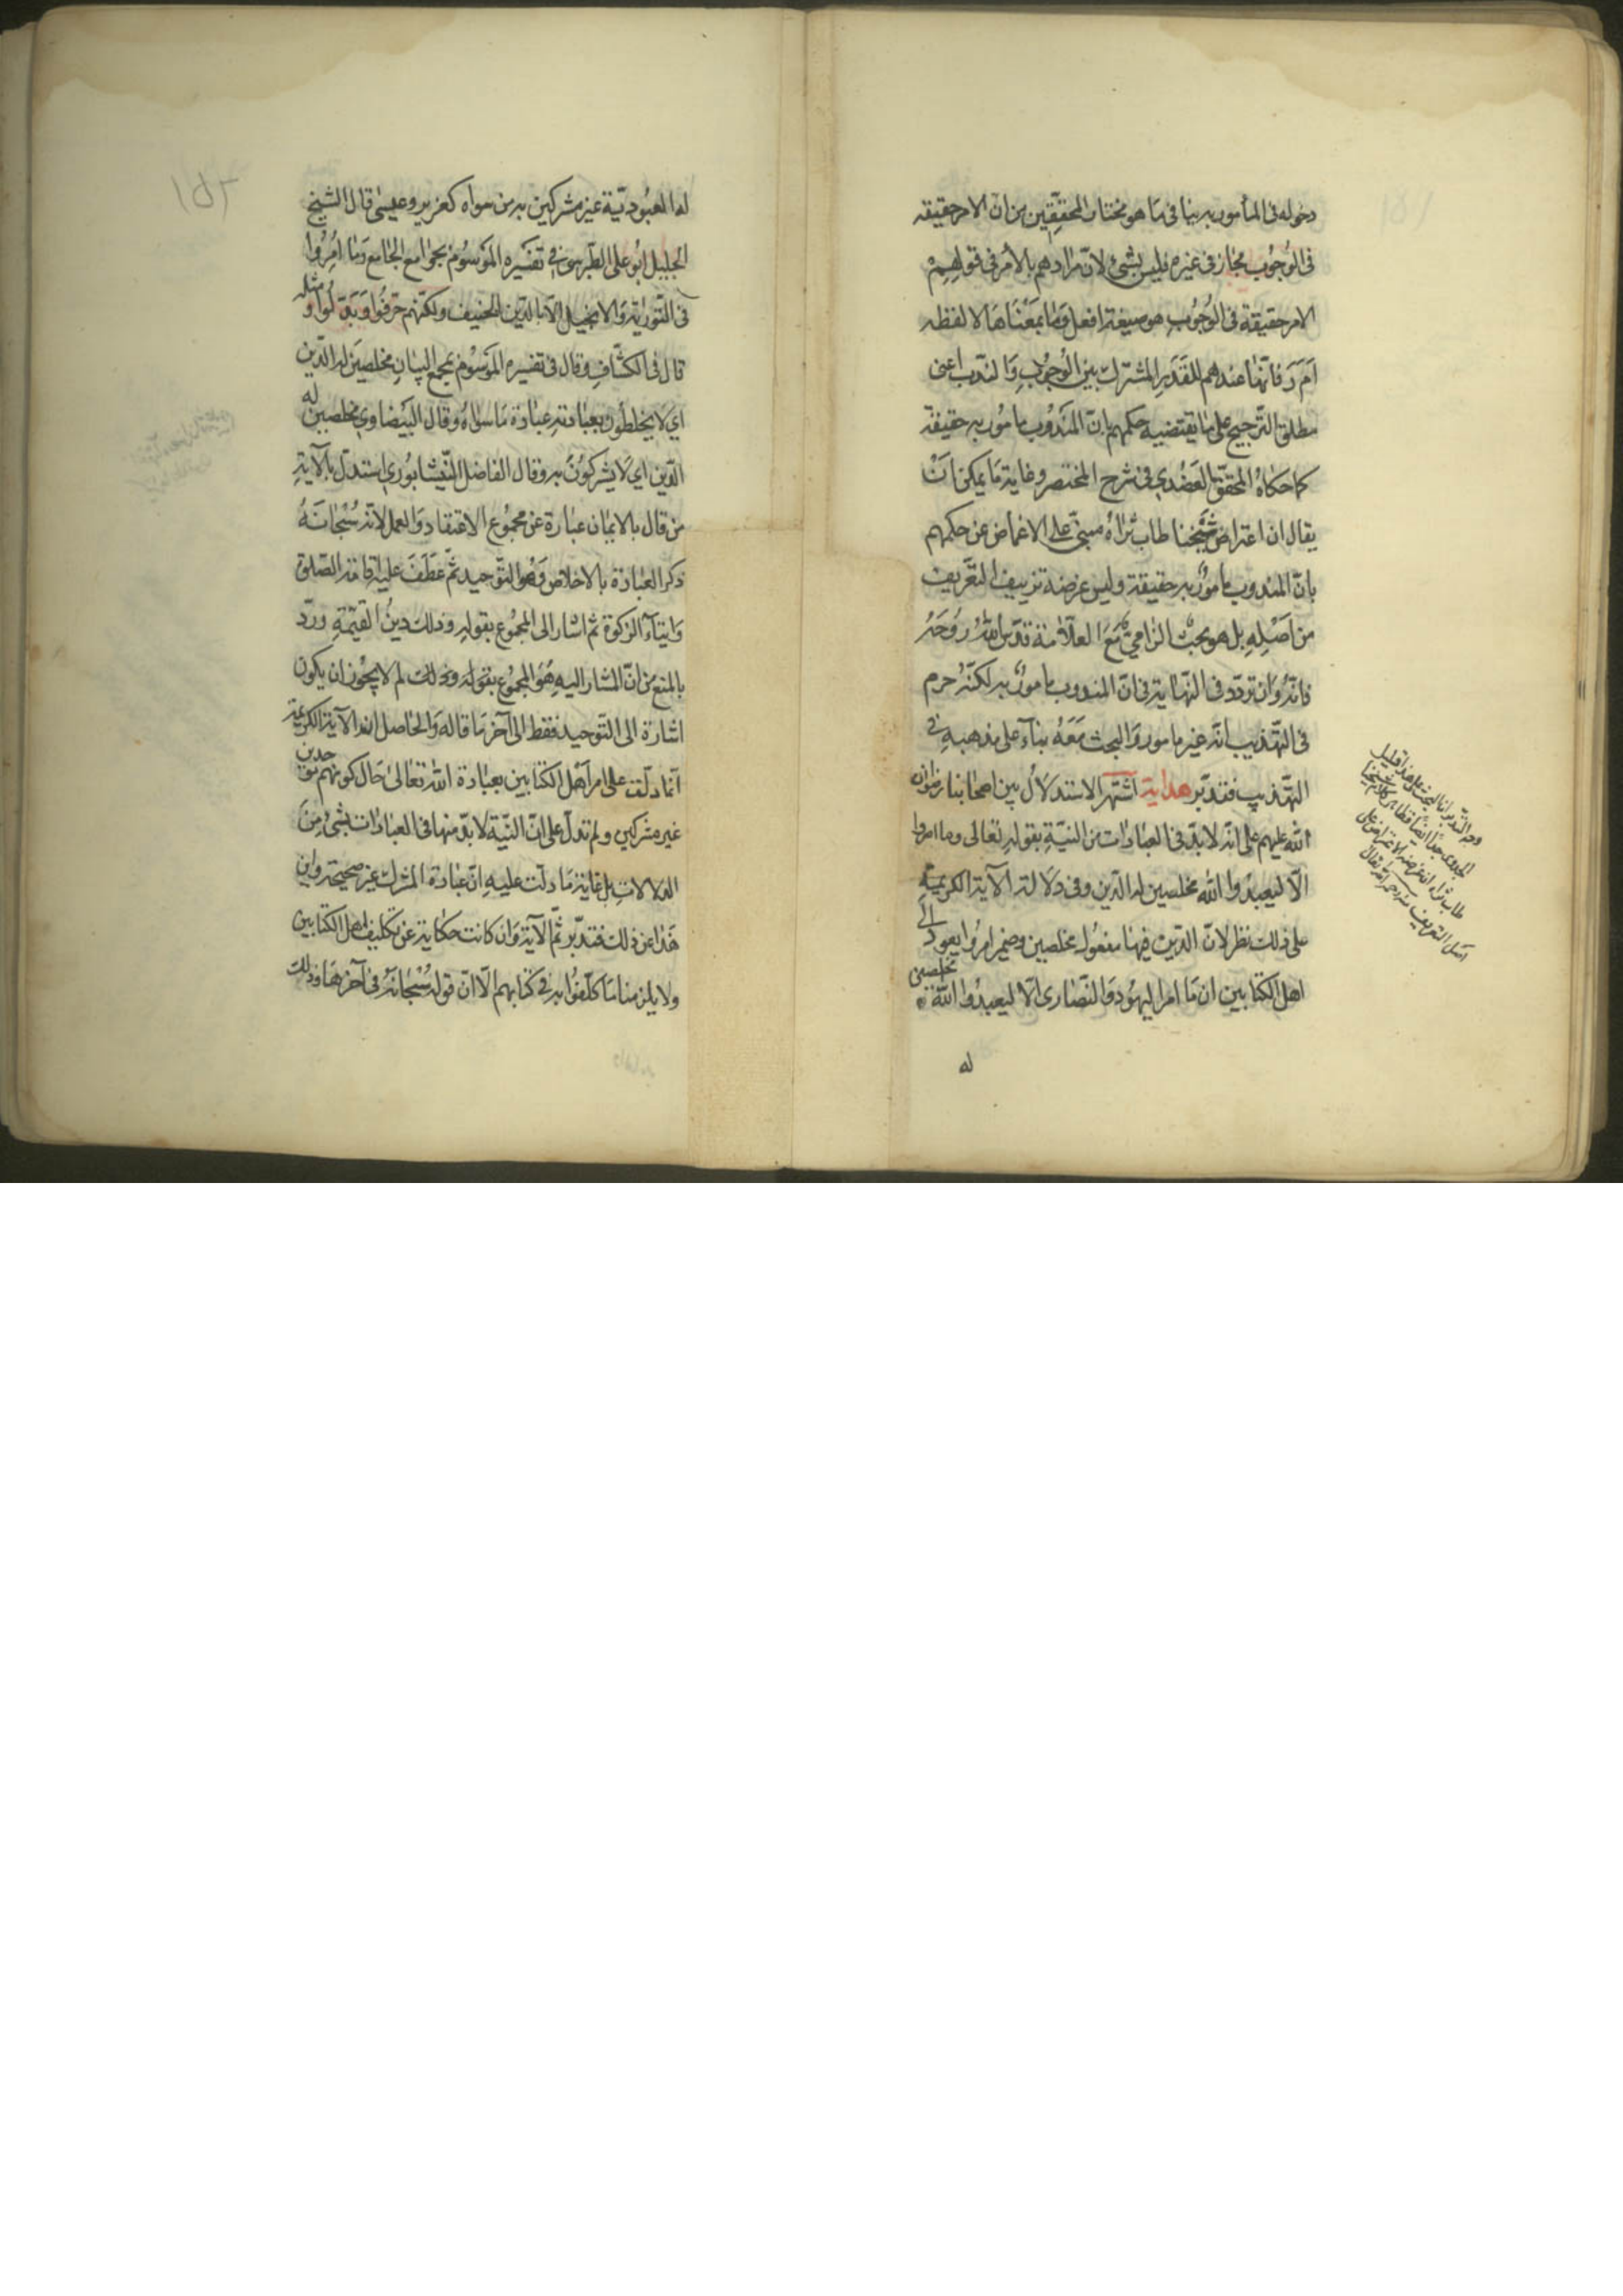 دخوله فى المأمور به ينافى مَا هو مختار المحقّقين من انّ الامر حقيقة
فى الوُجُوب مجاز فى غيره فليس بشئ لانّ مرادهم بالأمر فى قولهِمْ
الامر حقيقة فى الوُجُوبِ هو صيغة افعل وَمَا بمَعْنَاهَا لا لفظه
اَمَرَ فانّها عندهم للقَدَرِ المشترك بين الوُجُوبِ وَالندّب اعنى
مطلق الترّجيح على مَا يقتضيه حكمهم بانّ المَندُوب مامُور به حقيقة
كما حكاهُ المحقّق العَضُدي فى شرح المختصر وغاية مَا يمكن اَنْ
يقال ان اعتراض شَيْخنا طاب ثراهُ مبنىّ على الاغماض عن حكمهم
بانّ المندوب مامورٌ به حقيقة وليس غرضه تزييف التعّريف
من اَصْلِهِ بل هو بحثٌ الزامىٌّ مَعَ العلّامَة قدّس اللهُ روُحَهُ
فانّهُ وَان تردّد فى النّهاية فى انّ المندوب مامورٌ به لكنّهُ جزم
فى التهّذيب انّه غير مامور وَالبحث مَعَهُ بنآءً على مذهبهِ فى
التهّذيب فتدبّر هداية اشتهر الاستدلَالُ بين اصحابنا رضوان
الله عليهم على انّه لا بدّ فى العبادَات من النيّةِ بقوله تعالى وما امروا
الّا ليعبدُوا الله مخلصين له الدّين وفى دلالة الآية الكريمَةِ
على ذلك نظر لانّ الدّين فيها مفعُول مخلصين وضمير امرُوا يعود الى
اهل الكتابين اى مَا امر اليهُود وَالنّصَارى الّا ليعبدُوا اللهَ مخلصين
له
وجه التّدبّر انّ البحث على هذا قليل
الجدوى جدّاً ايضاً فظاهر كلام شيخنا
طاب ثراه ان غرضه الاعتراض على
اصل التعريف منه رحمه الله تعالى
١٥٢
له العبُوديّة غير مشركين به من سواه كعزير وعيسٰى قال الشيخ
الجليل ابُو على الطّبرسى فى تفسَيره الموَسُوم بجوامع الجامع وَمَا امِرُوا
فى التّورٰية وَالانجيل الّا بالدّين الحنيف ولكنّهم حرّفوُا وَبَدّلوُا ومثله
قال فى الكشّافِ وقال فى تفسيره الموَسُوم بمجمع البيَانِ مخلصينَ له الدّين
اى لَا يخلطُون بعبادته عبَادة مَا سواهُ وقال البَيضاوى مخلصين له
الدّين اى لَا يشركوُنَ به وقال الفاضل النّيشابُورى استدلّ بالآيةِ
من قال بالايمان عبَارة عن مجموُع الاعتقاد وَالعمل لانّه سُبْحانَهُ
ذكر العبَادة بالاخلاص وَهُو التّوحيد ثمّ عَطَفَ عليه اقامة الصّلوة
وَايتآء الزكوة ثمّ اشار الى المجموُع بقوله وذلك دينُ القيّمةِ وردّ
بالمنع من انّ المشار اليهِ هُوَ المجموُع بقوله وذلك لم لا يجُوز ان يكون
اشارة الى التّوحيد فقط الى آخر مَا قاله وَالحَاصل انّ الآية الكريمة
انّما دلّت على امر اَهْل الكتابين بعبادة الله تعالى حَال كونهم موحدين
غير مشركين ولم تدلّ على انّ النيّة لا بدّ منها فى العبادَات بشئ مِنَ
الدلالات بل غاية مَا دلّت عليهِ انّ عبَادة المشرك غير صَحيحة واين
هَذا عن ذلك فتدبّر ثمّ الآية وَان كانت حكاية عن تكليف اهل الكتابين
ولا يلزمنا مَا كلّفُوا به فى كتابهم الّا انّ قوله سُبْحانَهُ فى آخرهَا وذلك